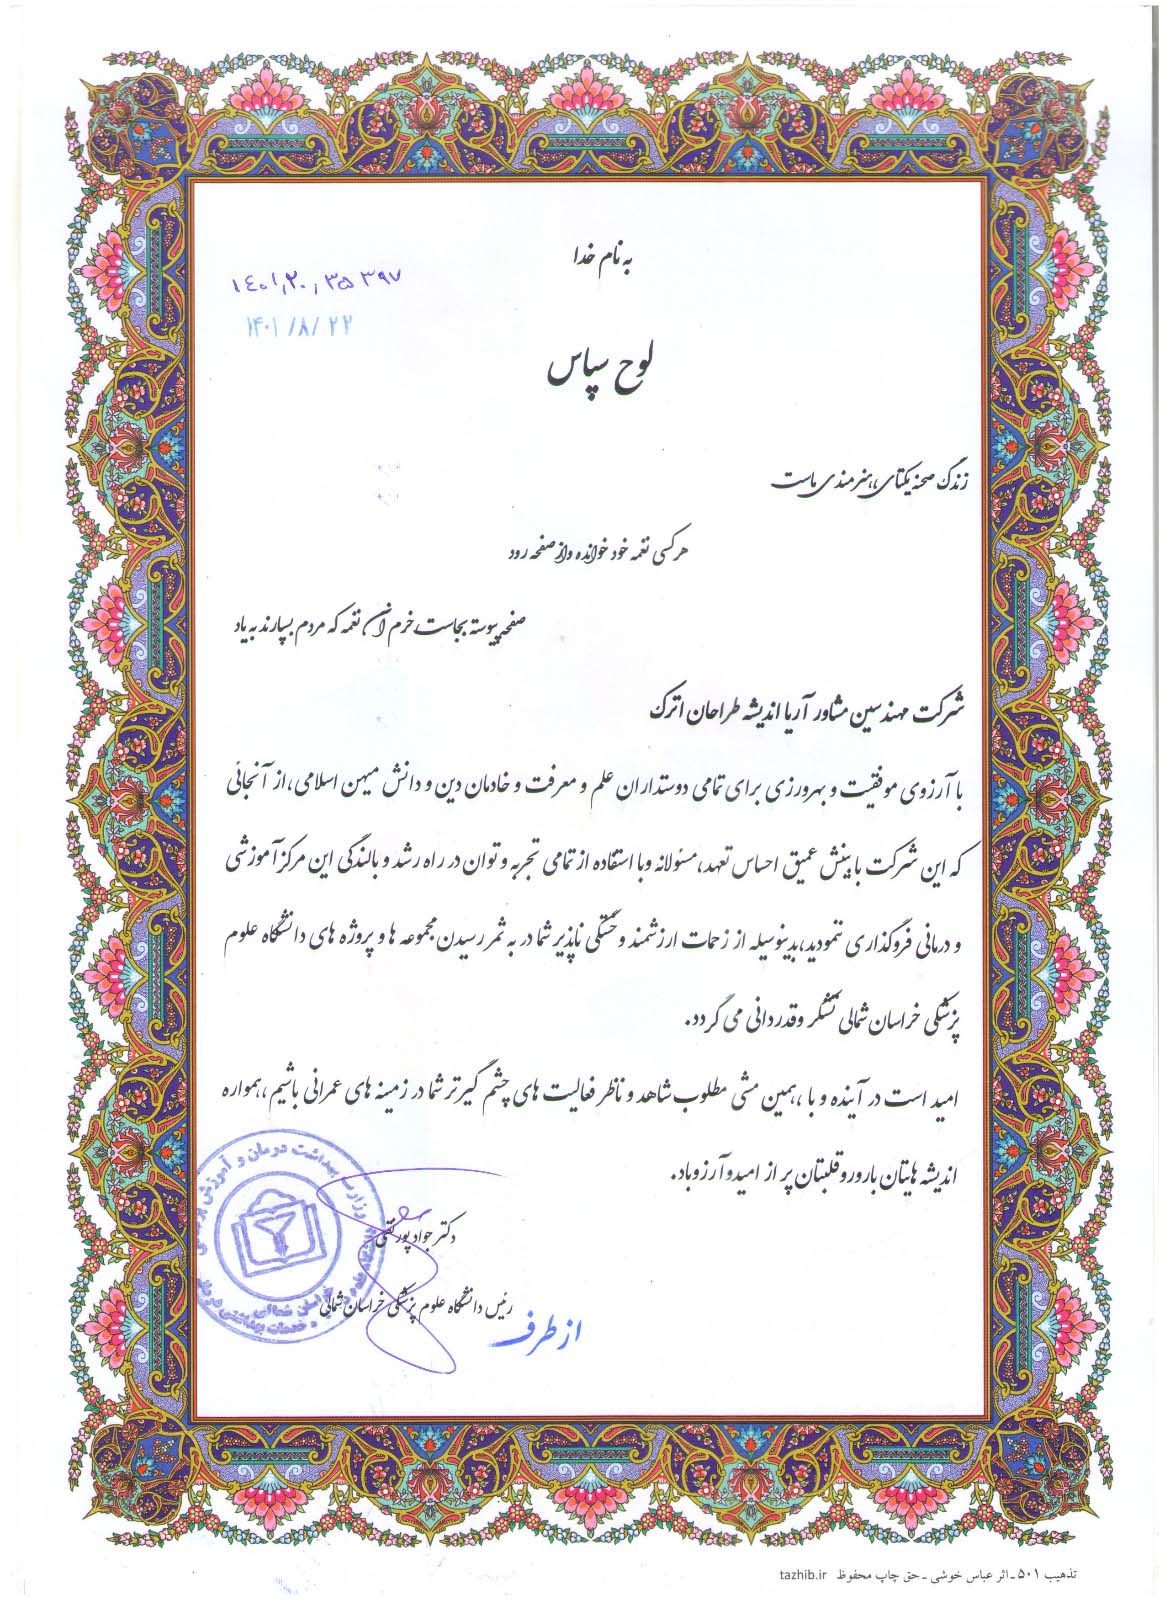 به نام خدا
۱۴۰۱,۲۰,۳۵۳۹۷
۱۴۰۱/۸/۲۲
لوح سپاس
زندگی صحنه یکتای هنرمندی ماست
هر کسی نغمه خود خوانده و از صفحه رود
صفحه پیوسته بجاست خرم آن نغمه که مردم بسپارند به یاد
شرکت مهندسین مشاور آریا اندیشه طراحان اترک
با آرزوی موفقیت و بهروزی برای تمامی دوستداران علم و معرفت و خادمان دین و دانش میهن اسلامی، از آنجائی
که این شرکت با بینش عمیق احساس تعهد، مسئولانه و با استفاده از تمامی تجربه و توان در راه رشد و بالندگی این مرکز آموزشی
و درمانی فروگذاری ننمودید، بدینوسیله از زحمات ارزشمند و خستگی ناپذیر شما در به ثمر رسیدن مجموعه ها و پروژه های دانشگاه علوم
پزشکی خراسان شمالی تشکر و قدردانی می گردد.
امید است در آینده و با ،همین مشی مطلوب شاهد و ناظر فعالیت های چشم گیرتر شما در زمینه های عمرانی باشیم ،همواره
اندیشه هایتان بارور و قلبتان پر از امید و آرزو باد.
دکتر جواد پورتقی
رئیس دانشگاه علوم پزشکی خراسان شمالی
از طرف
وزارت بهداشت درمان و آموزش پزشکی
تذهیب ۵۰۱ - اثر عباس خوشی - حق چاپ محفوظ tazhib.ir